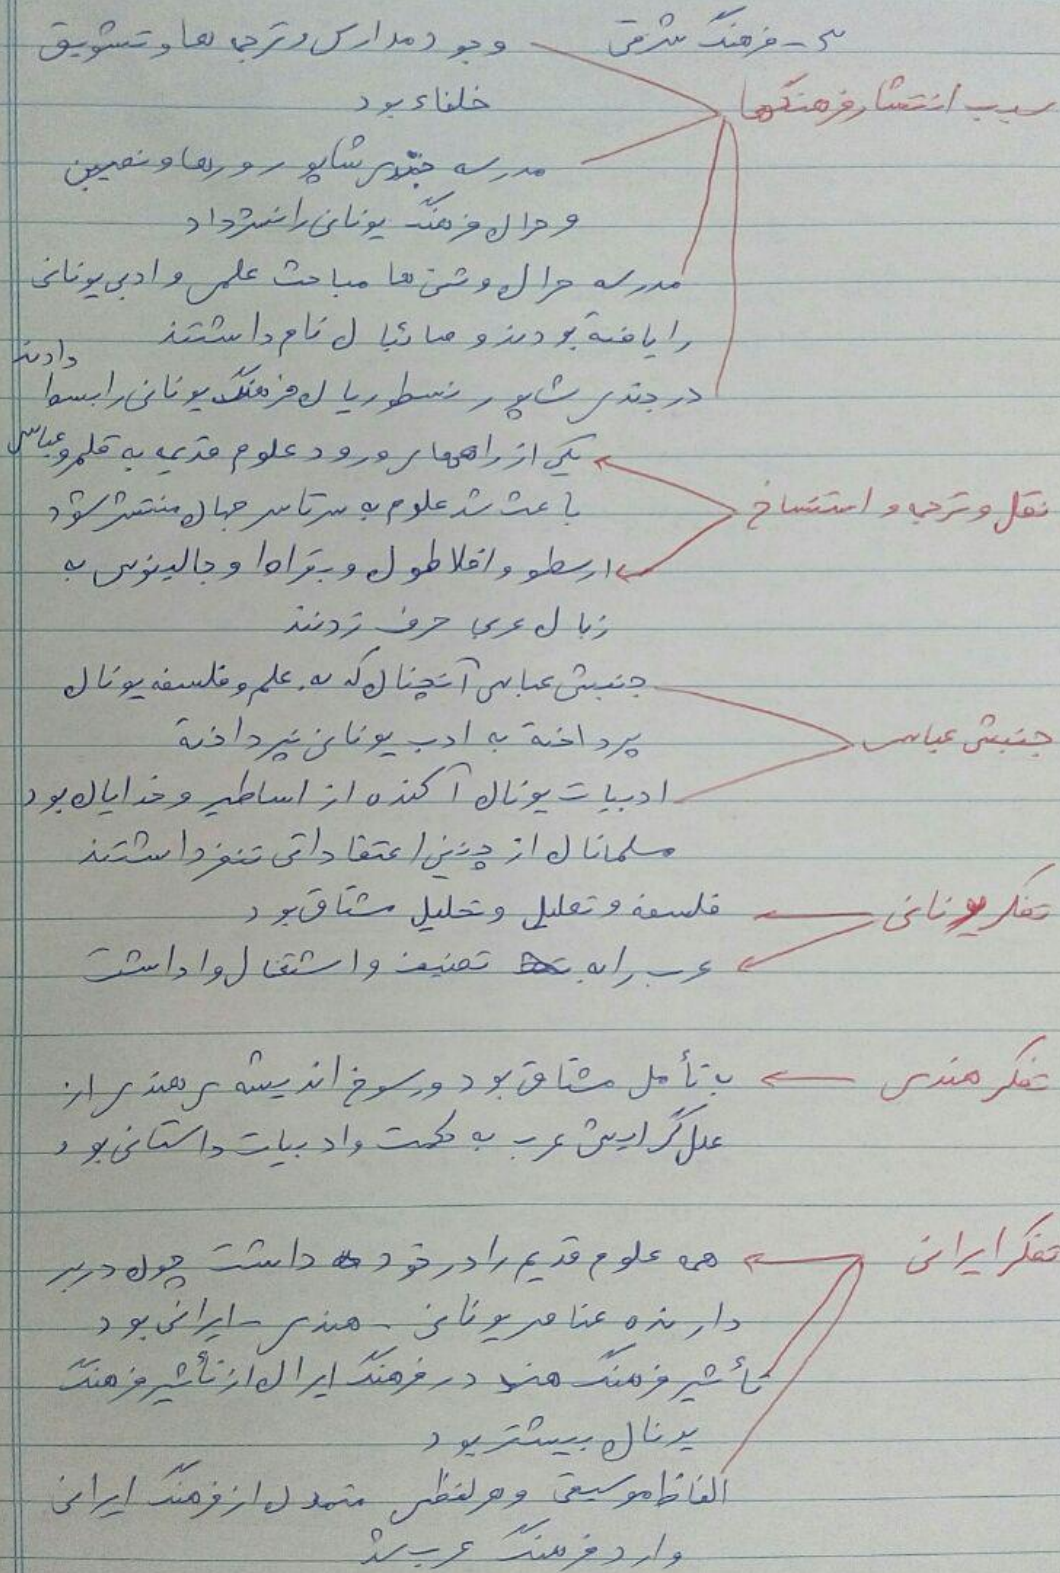 ۳- فرهنگ شرقی
سبب انتشار فرهنگها
وجود مدارس و ترجمه ها و تشویق
خلفاء بود
مدرسه جندی شاپور و رها و نصیبین
و حران فرهنگ یونانی را نشر داد
مدرسه حران وثنی ها مباحث علمی و ادبی یونانی
را یافته بودند و صائبان نام داشتند
در جندی شاپور نسطوریان فرهنگ یونانی را بسط دادند
نقل و ترجمه و استنساخ
یکی از راههای ورود علوم قدیم به قلمرو عباسی
باعث شد علوم به سرتاسر جهان منتشر شود
ارسطو و افلاطون و بقراط و جالینوس به
زبان عربی حرف زدند
جنبش عباسی
جنبش عباسی آنچنان که به علم و فلسفه یونان
پرداخته به ادب یونانی نپرداخته
ادبیات یونان آکنده از اساطیر و خدایان بود
مسلمانان از چنین اعتقاداتی تنفر داشتند
تفکر یونانی
فلسفه و تعلیل و تحلیل مشتاق بود
عرب را به تصنیف و اشتغال واداشت
تفکر هندی
به تأمل مشتاق بود و رسوخ اندیشه ی هندی از
علل گرایش عرب به حکمت و ادبیات داستانی بود
تفکر ایرانی
همه علوم قدیم را در خود داشت چون دربر
دارنده عناصر یونانی - هندی - ایرانی بود
تأثیر فرهنگ هند در فرهنگ ایران از تأثیر فرهنگ
یونان بیشتر بود
الفاظ موسیقی و هر لفظی متمدن از فرهنگ ایرانی
وارد فرهنگ عرب شد